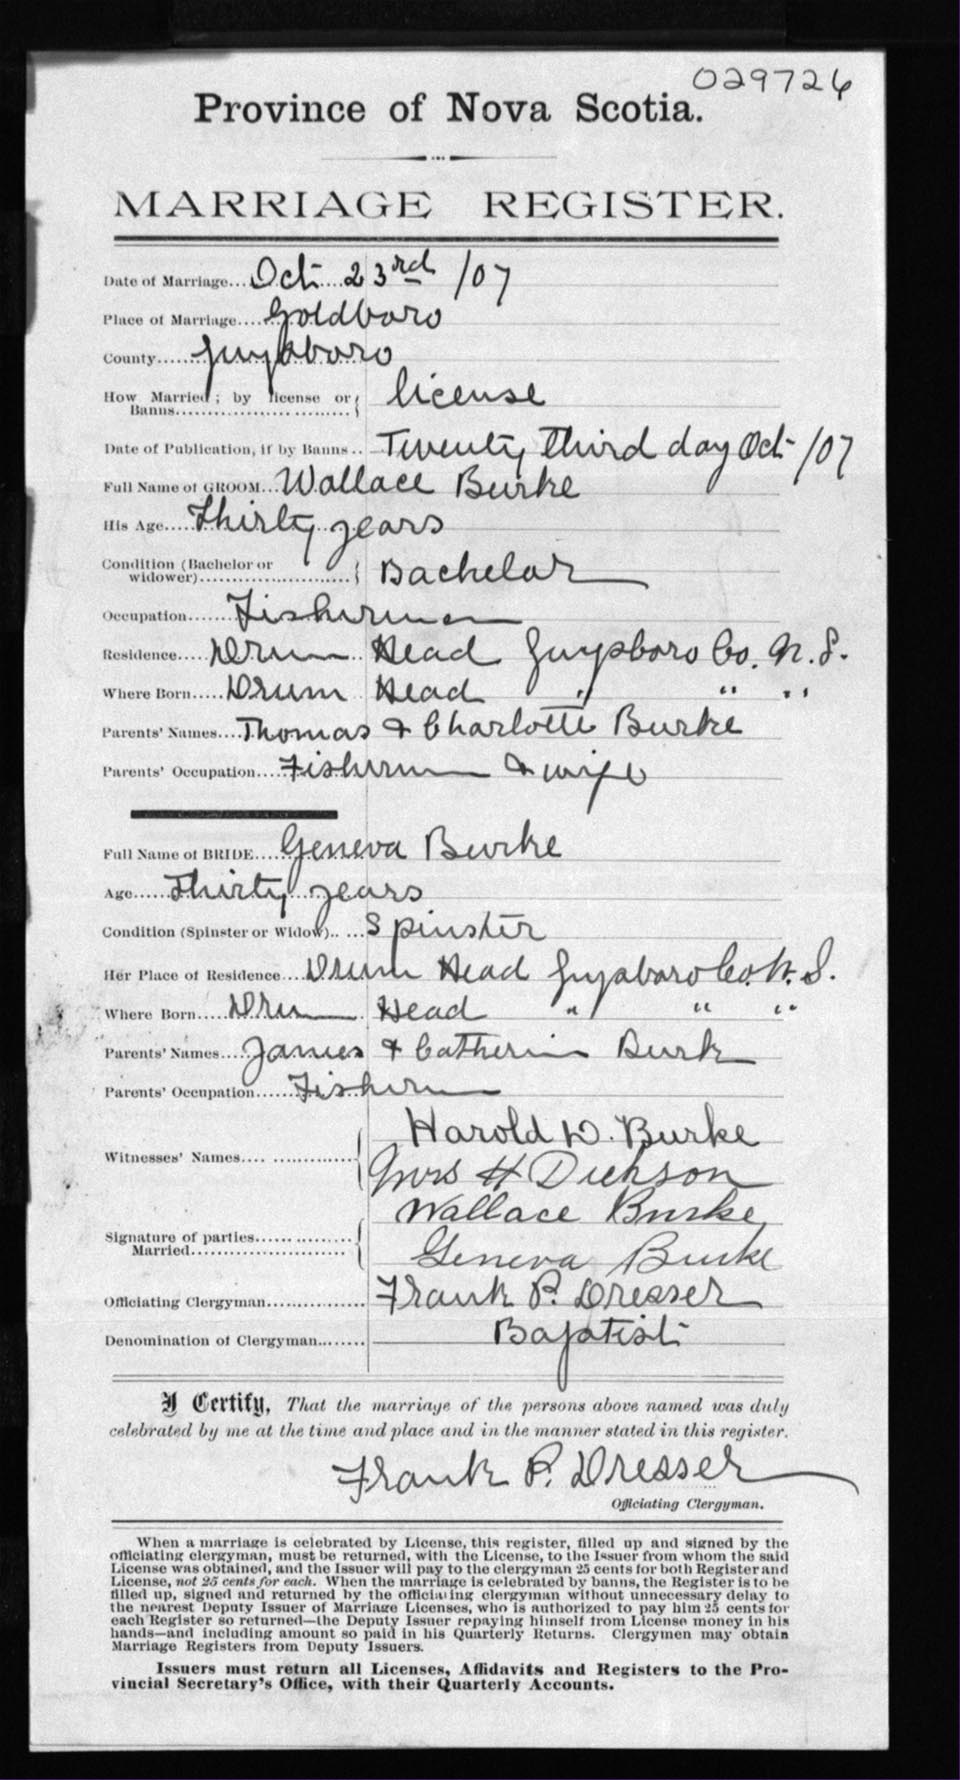 029726
Province of Nova Scotia.
MARRIAGE REGISTER.
Date of Marriage... Oct. 23rd /07
Place of Marriage.... Goldboro
County...... Guysboro
How Married; by license or Banns.......... license
Date of Publication, if by Banns.. Twenty third day Oct /07
Full Name of GROOM... Wallace Burke
His Age.... Thirty years
Condition (Bachelor or widower).......... Bachelor
Occupation....... Fisherman
Residence.... Drum Head Guysboro Co. N. S.
Where Born..... Drum Head " " "
Parents' Names.... Thomas & Charlotte Burke
Parents' Occupation.... Fisherman & wife
Full Name of BRIDE..... Geneva Burke
Age...... Thirty years
Condition (Spinster or Widow).. ... Spinster
Her Place of Residence.... Drum Head Guysboro Co. N. S.
Where Born..... Drum Head " " "
Parents' Names.... James & Catherine Burke
Parents' Occupation...... Fisherman
Harold D. Burke
Witnesses' Names.... ..............
Mrs H Dickson
Wallace Burke
Signature of parties.............. Married..................
Geneva Burke
Officiating Clergyman............... Frank P. Dresser
Denomination of Clergyman........ Baptist
I Certify, That the marriage of the persons above named was duly
celebrated by me at the time and place and in the manner stated in this register.
Frank P. Dresser
Officiating Clergyman.
When a marriage is celebrated by License, this register, filled up and signed by the
officiating clergyman, must be returned, with the License, to the Issuer from whom the said
License was obtained, and the Issuer will pay to the clergyman 25 cents for both Register and
License, not 25 cents for each. When the marriage is celebrated by banns, the Register is to be
filled up, signed and returned by the officiating clergyman without unnecessary delay to
the nearest Deputy Issuer of Marriage Licenses, who is authorized to pay him 25 cents for
each Register so returned—the Deputy Issuer repaying himself from License money in his
hands—and including amount so paid in his Quarterly Returns. Clergymen may obtain
Marriage Registers from Deputy Issuers.
Issuers must return all Licenses, Affidavits and Registers to the Pro-
vincial Secretary's Office, with their Quarterly Accounts.